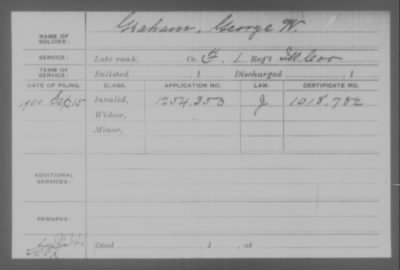 Graham, George W.
NAME OF SOLDIER:
SERVICE: Late rank, Co. F, 1 Reg't Ill. Cav
TERM OF SERVICE: Enlisted , 1 Discharged , 1
DATE OF FILING. CLASS. APPLICATION NO. LAW. CERTIFICATE NO.
1900 Sep 15 Invalid, 1254,353 J 1018,782
Widow,
Minor,
ADDITIONAL SERVICES:
REMARKS:
Died , 1 , at